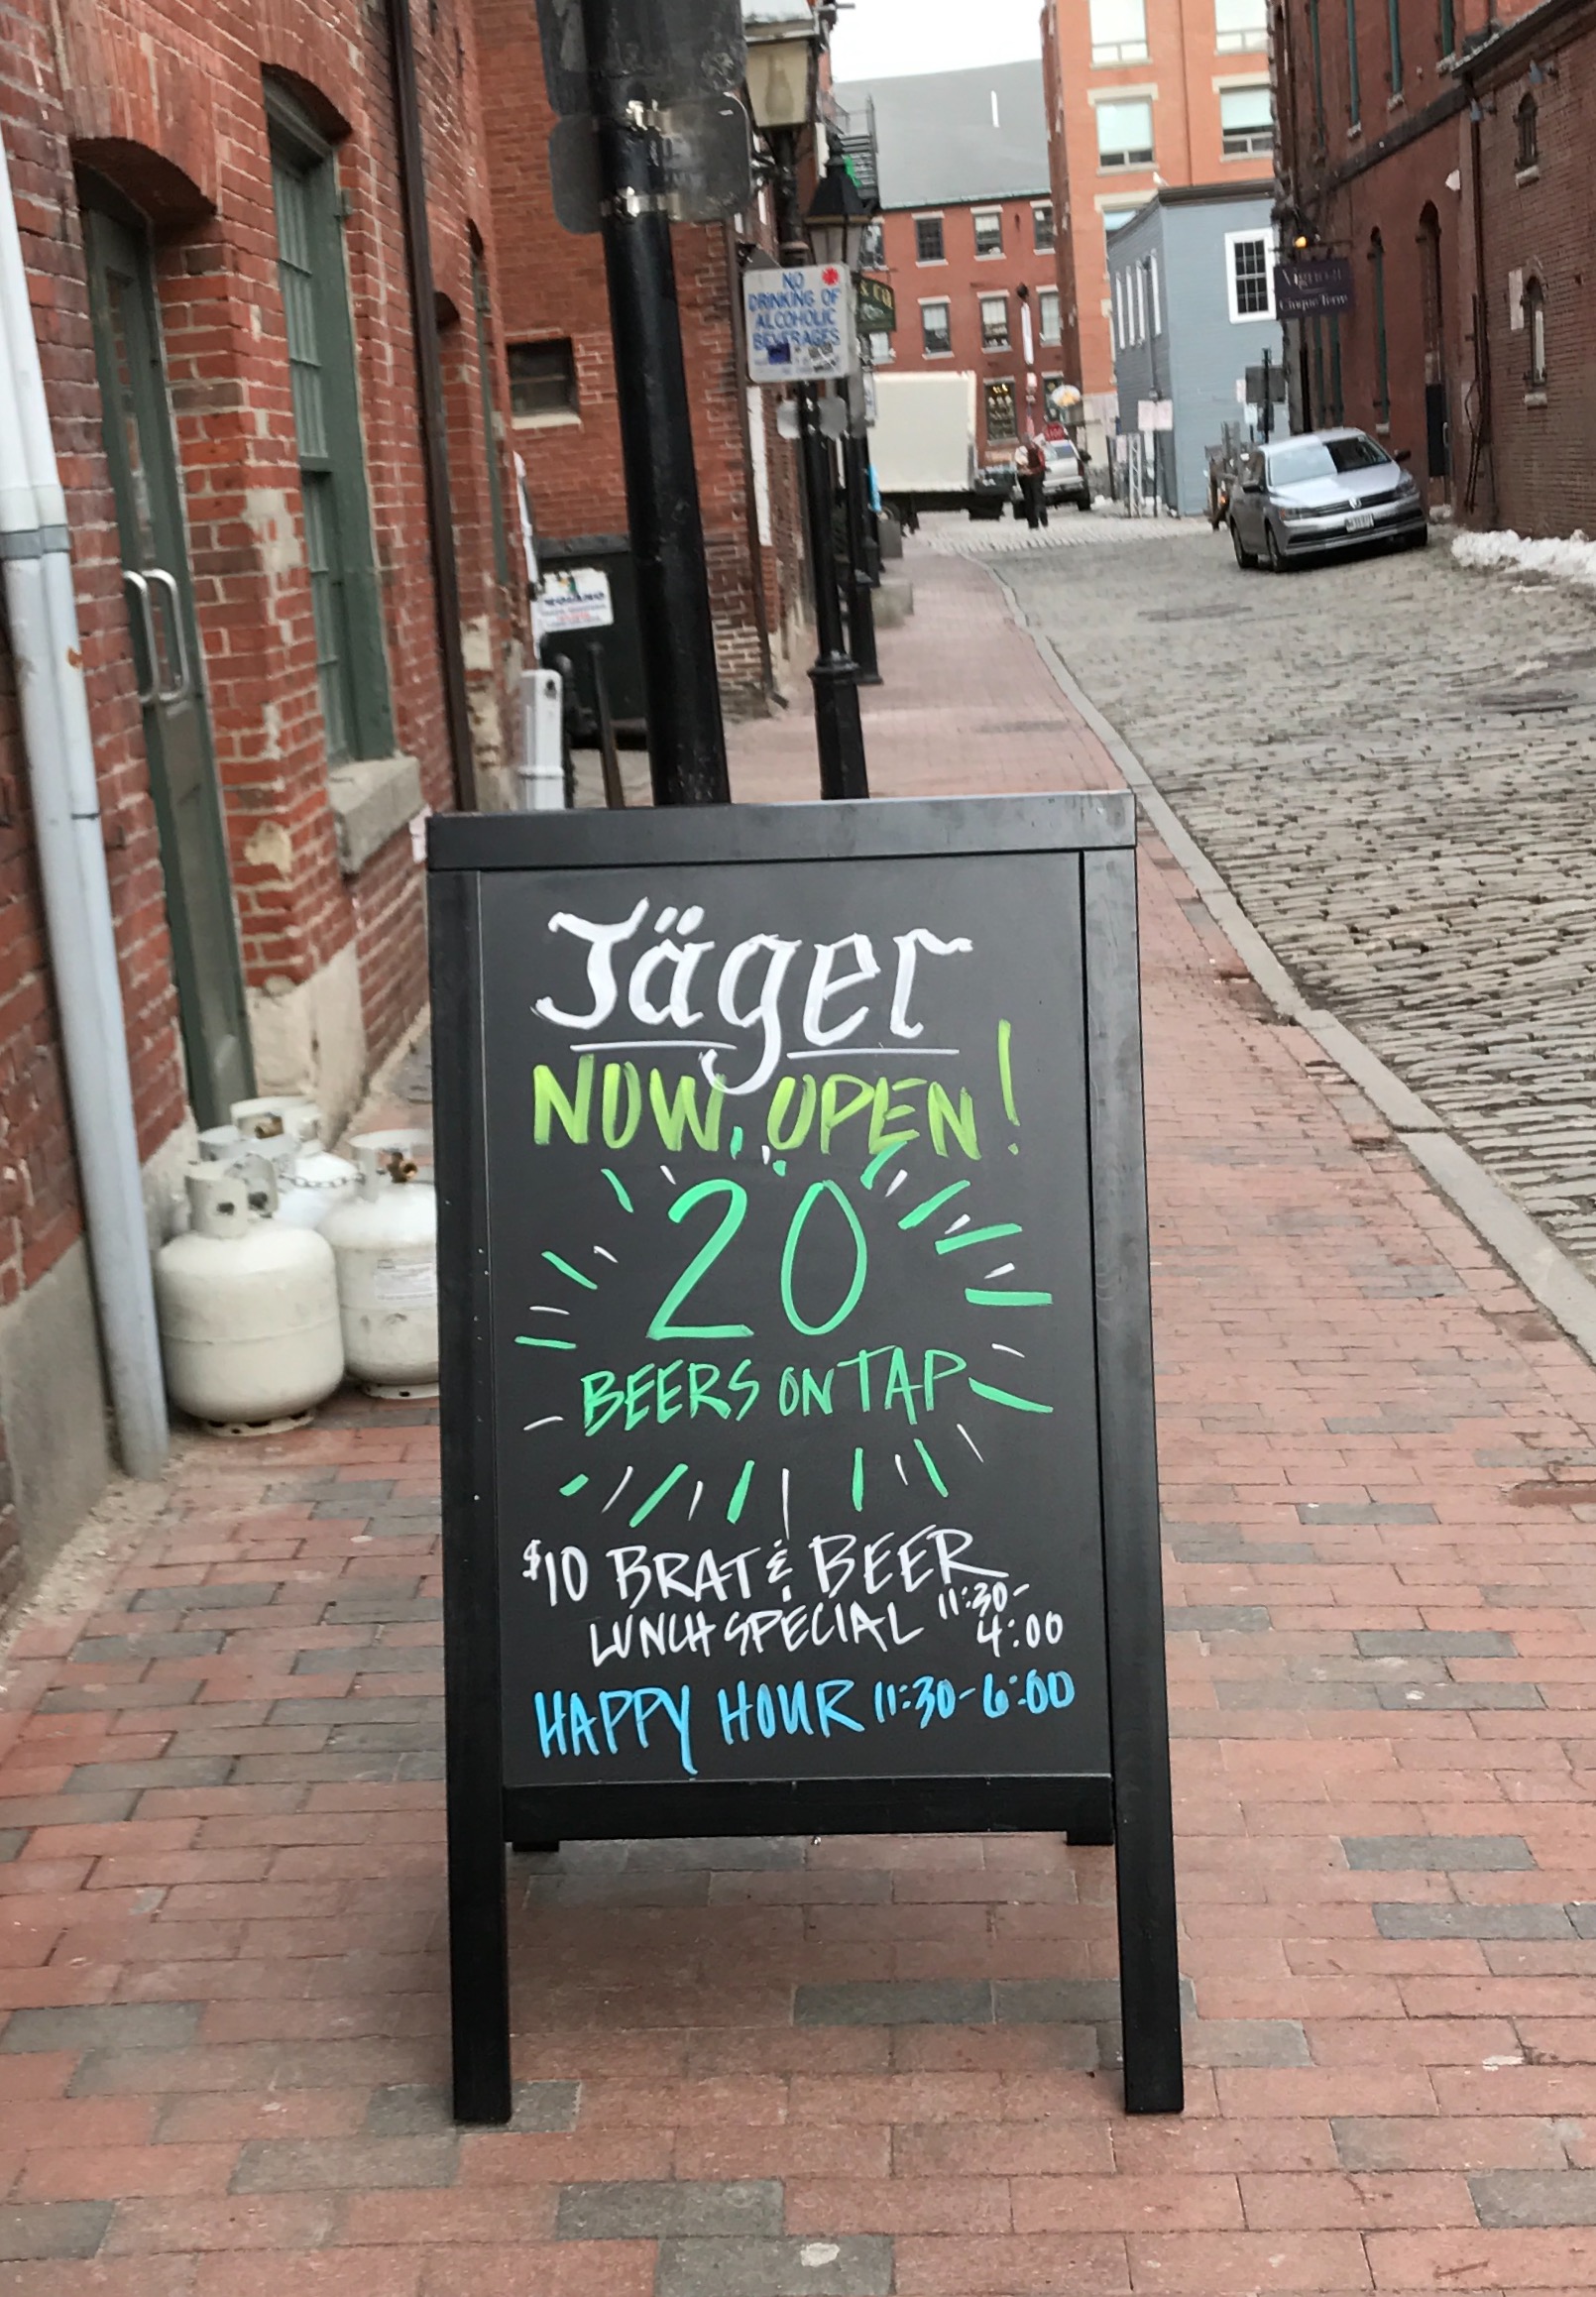 NO
DRINKING OF
ALCOHOLIC
BEVERAGES
& CO
Vignola
Cinque Terre
Jäger
NOW OPEN!
20
BEERS ON TAP
$10 BRAT & BEER
LUNCH SPECIAL 11:30-
4:00
HAPPY HOUR 11:30-6:00